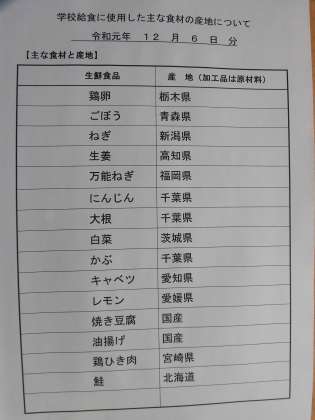 学校給食に使用した主な食材の産地について
令和元年 12 月 6 日 分
【主な食材と産地】
生鮮食品 産 地（加工品は原材料）
鶏卵 栃木県
ごぼう 青森県
ねぎ 新潟県
生姜 高知県
万能ねぎ 福岡県
にんじん 千葉県
大根 千葉県
白菜 茨城県
かぶ 千葉県
キャベツ 愛知県
レモン 愛媛県
焼き豆腐 国産
油揚げ 国産
鶏ひき肉 宮崎県
鮭 北海道